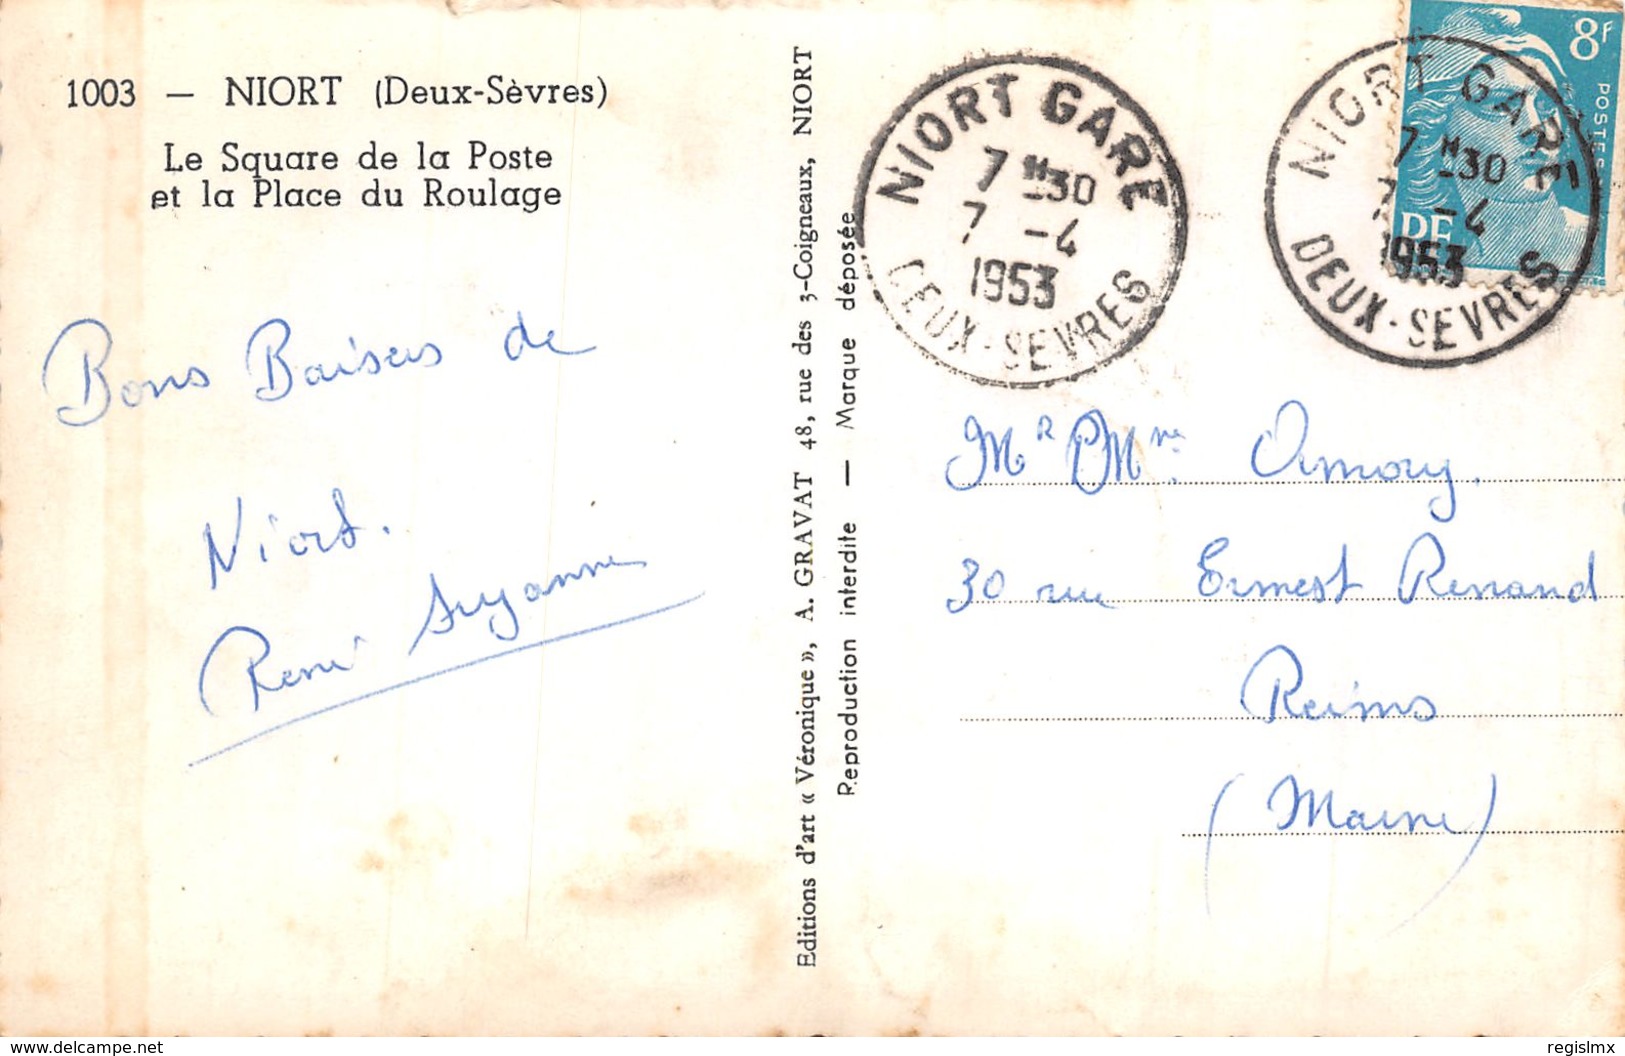 1003 — NIORT (Deux-Sèvres)
Le Square de la Poste
et la Place du Roulage
Bons Baisers de
Niort.
René Suzanne
Editions d'art « Véronique », A. GRAVAT 48, rue des 3-Coigneaux, NIORT
Reproduction interdite — Marque déposée
NIORT GARE
7 H30
7 -4
1953
DEUX-SEVRES
8F
POSTES
NIORT GARE
7 H30
7 -4
1953
DEUX-SEVRES
Mr Mme Amory.
30 rue Ernest Renand
Reims
(Marne)
www.delcampe.net
regislmx